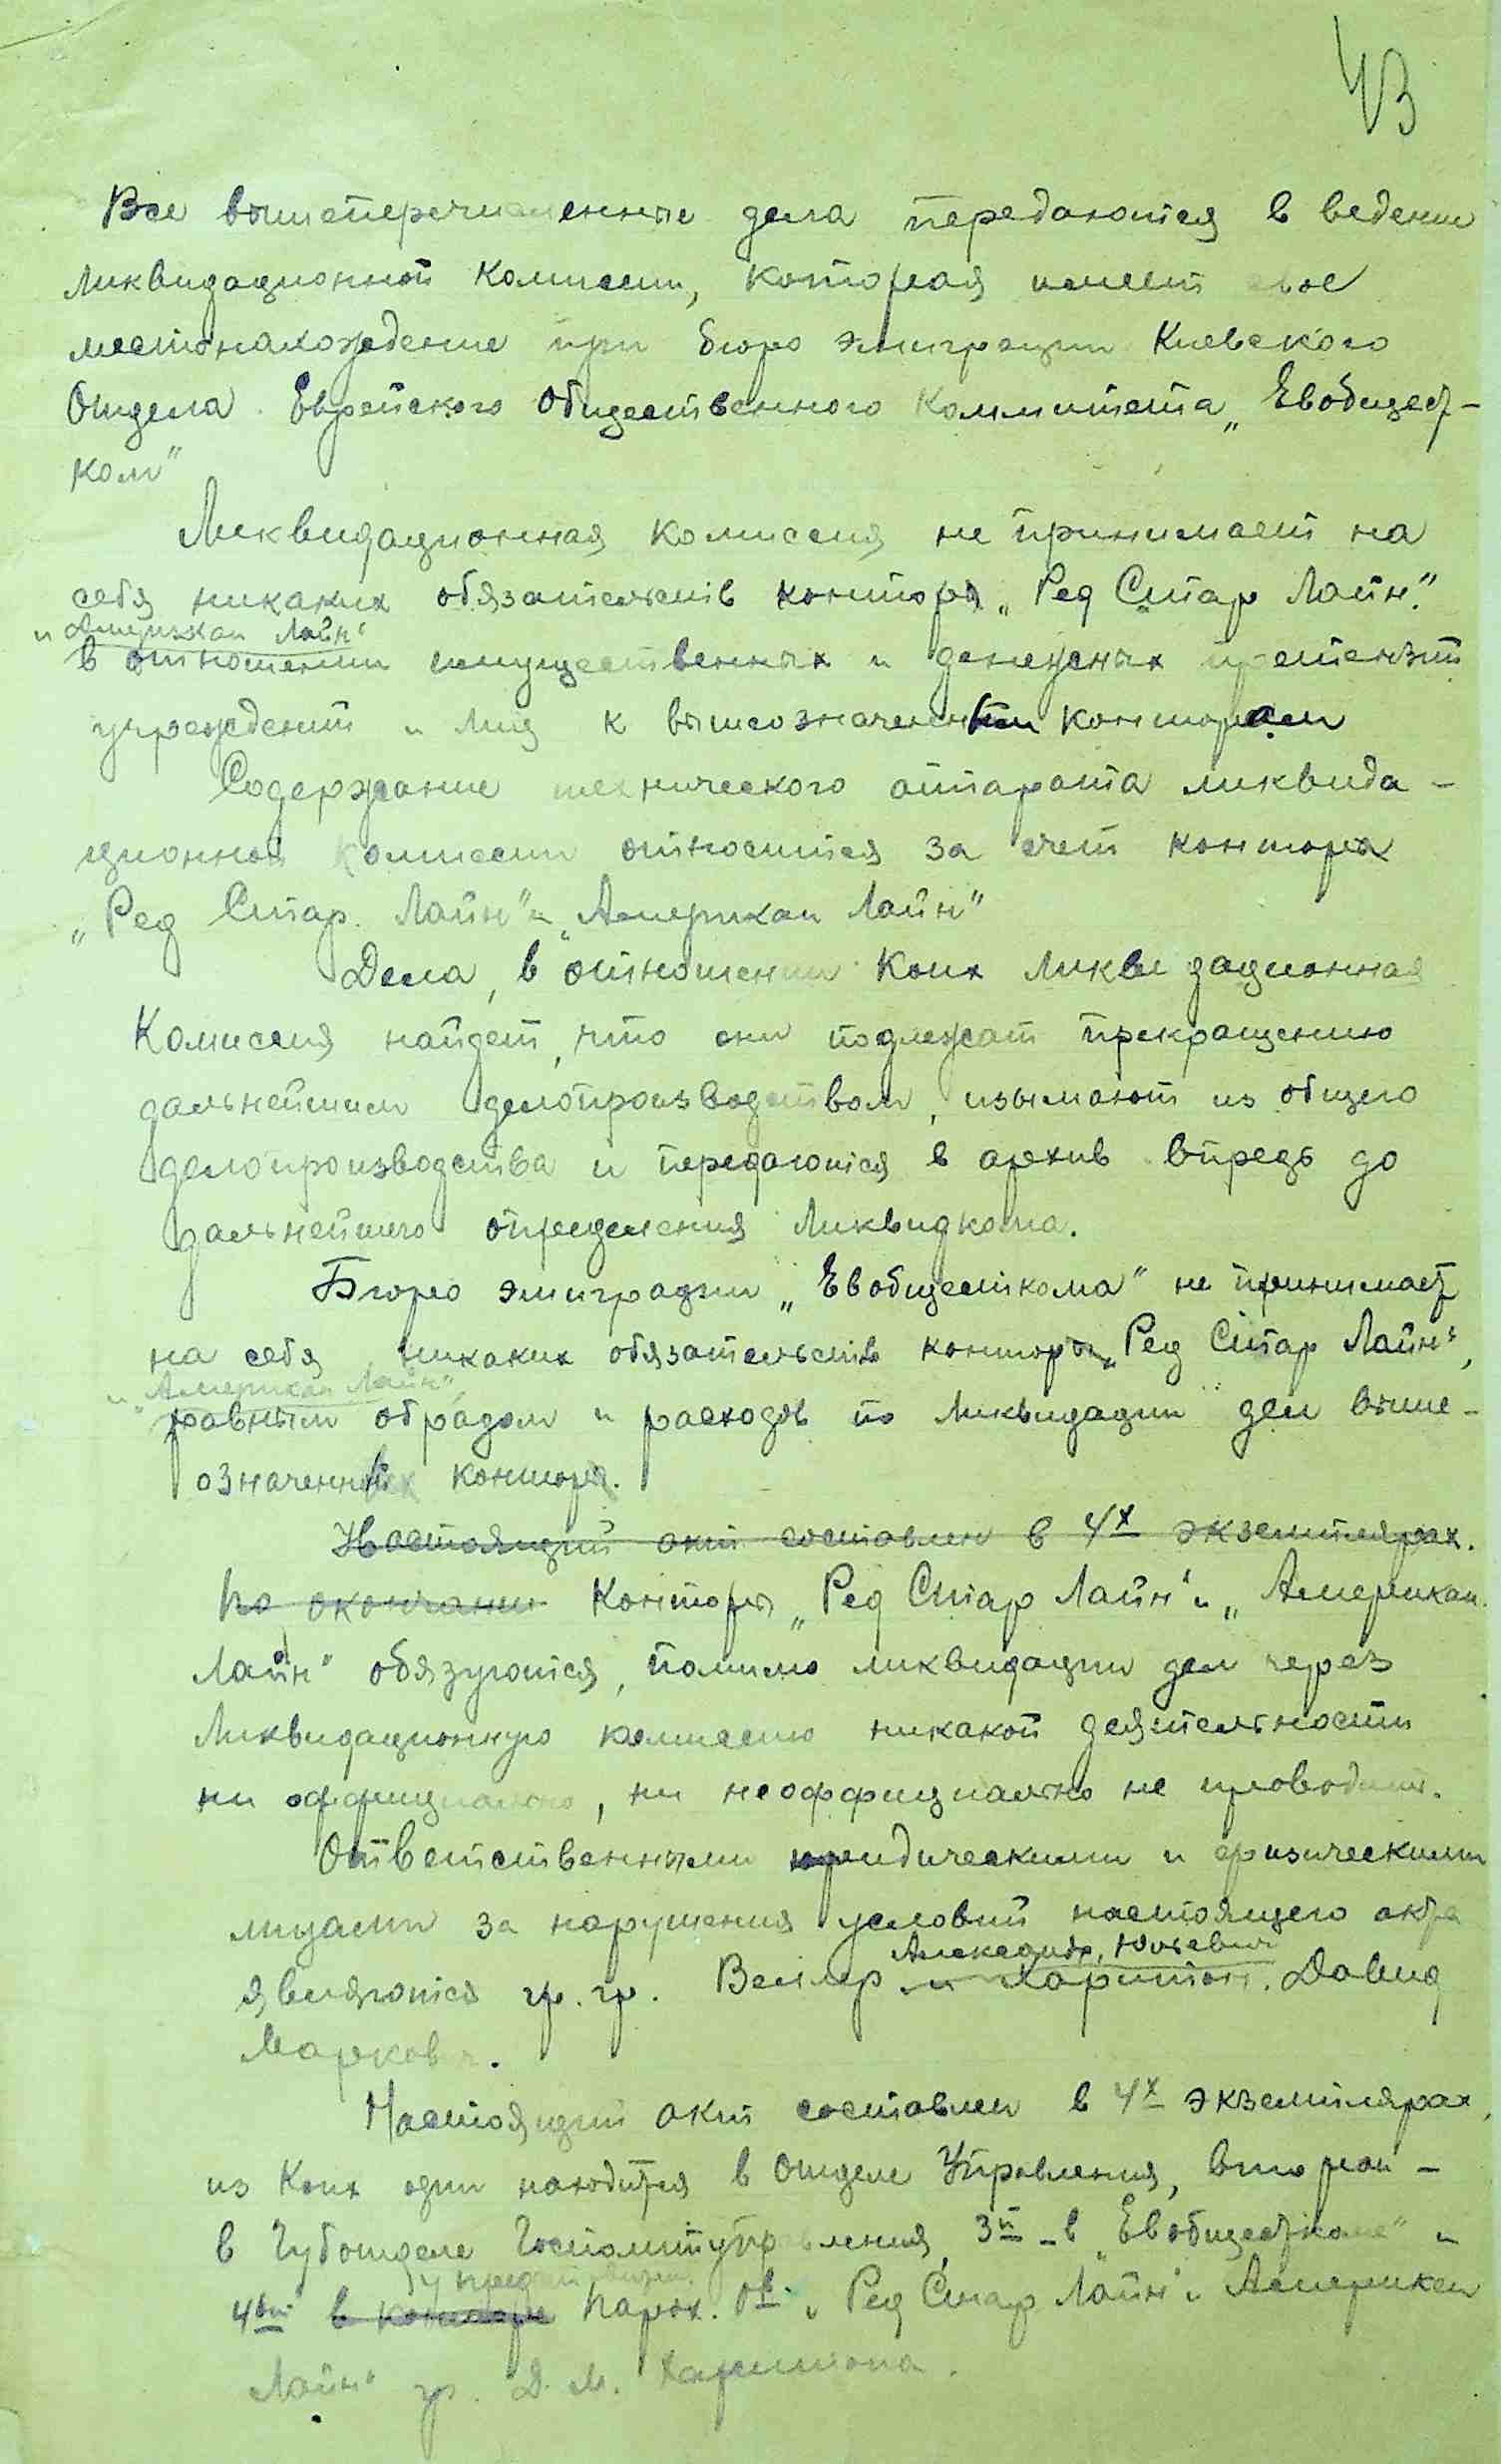 43
Все вышеперечисленные дела передаются в ведение
Ликвидационной Комиссии, которая имеет свое
местонахождение при бюро эмиграции Киевского
Отдела Еврейского Общественного Коммитета „Евобщест-
ком"
Ликвидационная комиссия не принимает на
себя никаких обязательств конторы „Ред Стар Лайн"
и „Американ Лайн"
в отношении имущественных и денежных претензий
учреждений и лиц к вышеозначенным конторам
Содержание технического аппарата ликвида-
ционной комиссии относится за счет конторы
„Ред Стар. Лайн" и „Американ Лайн"
Дела, в отношении коих ликвидационная
Комиссия найдет, что они подлежат прекращению
дальнейшим делопроизводством, изымают из общего
делопроизводства и передаются в архив впредь до
дальнейшего определения Ликвидкома.
Бюро эмиграции „Евобщесткома" не принимает
на себя никаких обязательств конторы „Ред Стар Лайн",
и „Американ Лайн",
равным образом и расходов по ликвидации дел выше-
означенных контор.
Настоящий акт составлен в 4х экземплярах.
По окончании Конторы „Ред Стар Лайн" и „Американ
Лайн" обязуются, помимо ликвидации дел через
Ликвидационную комиссию никакой деятельности
ни оффициально, ни неоффициально не проводить.
Ответственными юридическими и физическими
лицами за нарушения условий настоящего акта
Александр. Юльевич
являются гр. гр. Веллер и Харитон. Давид
Маркович.
Настоящий акт составлен в 4х экземплярах,
из Коих один находится в Отделе Управления, второй -
в Губотделе Госполитуправления, 3й - в „Евобщесткоме" и
у
4ый в конторе Парох. О-в „Ред Стар Лайн" и Американ
Лайн" гр. Д. М. Харитона.